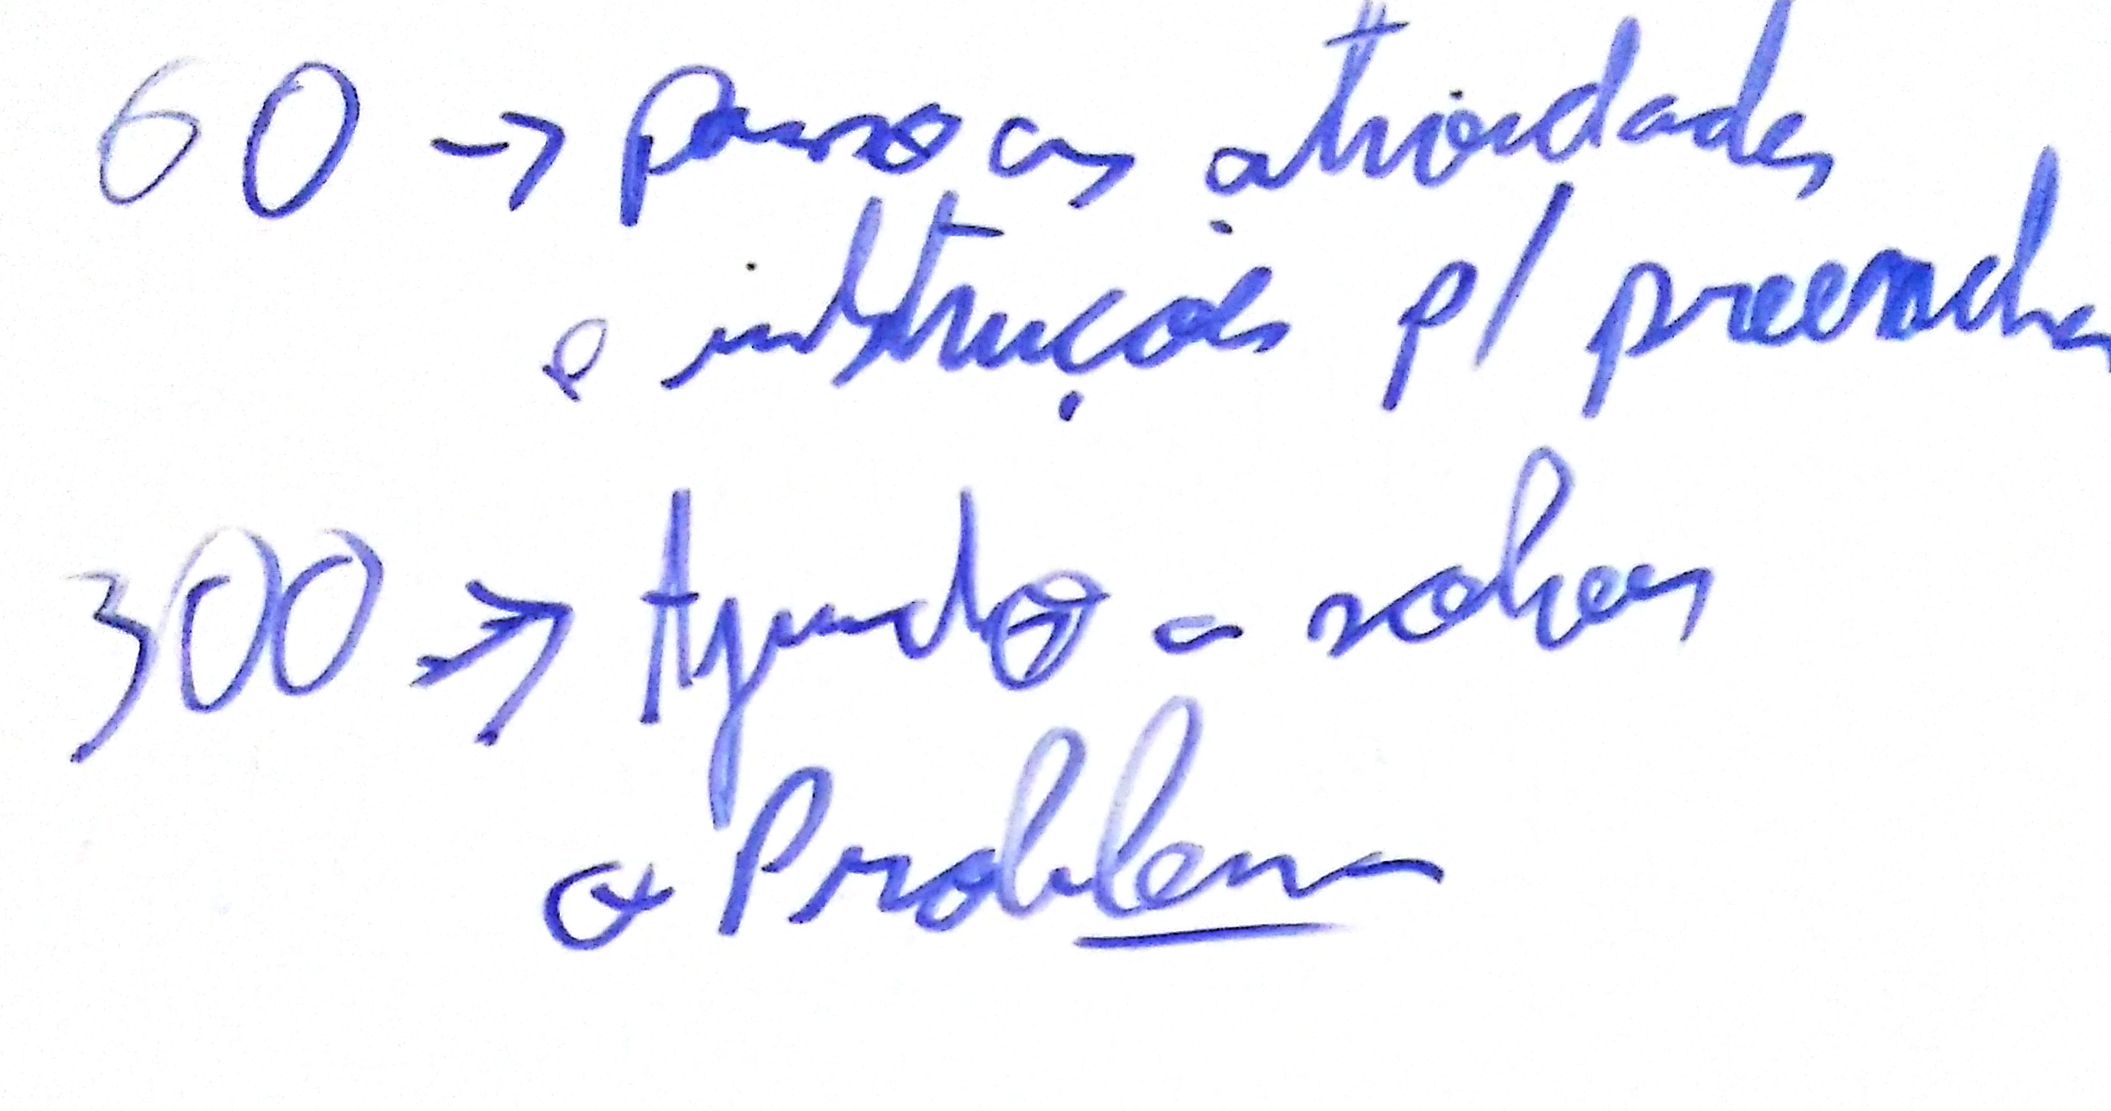 60 → passo as atividades
e instruções p/ preencher
300 → Ajudo a
o Problema